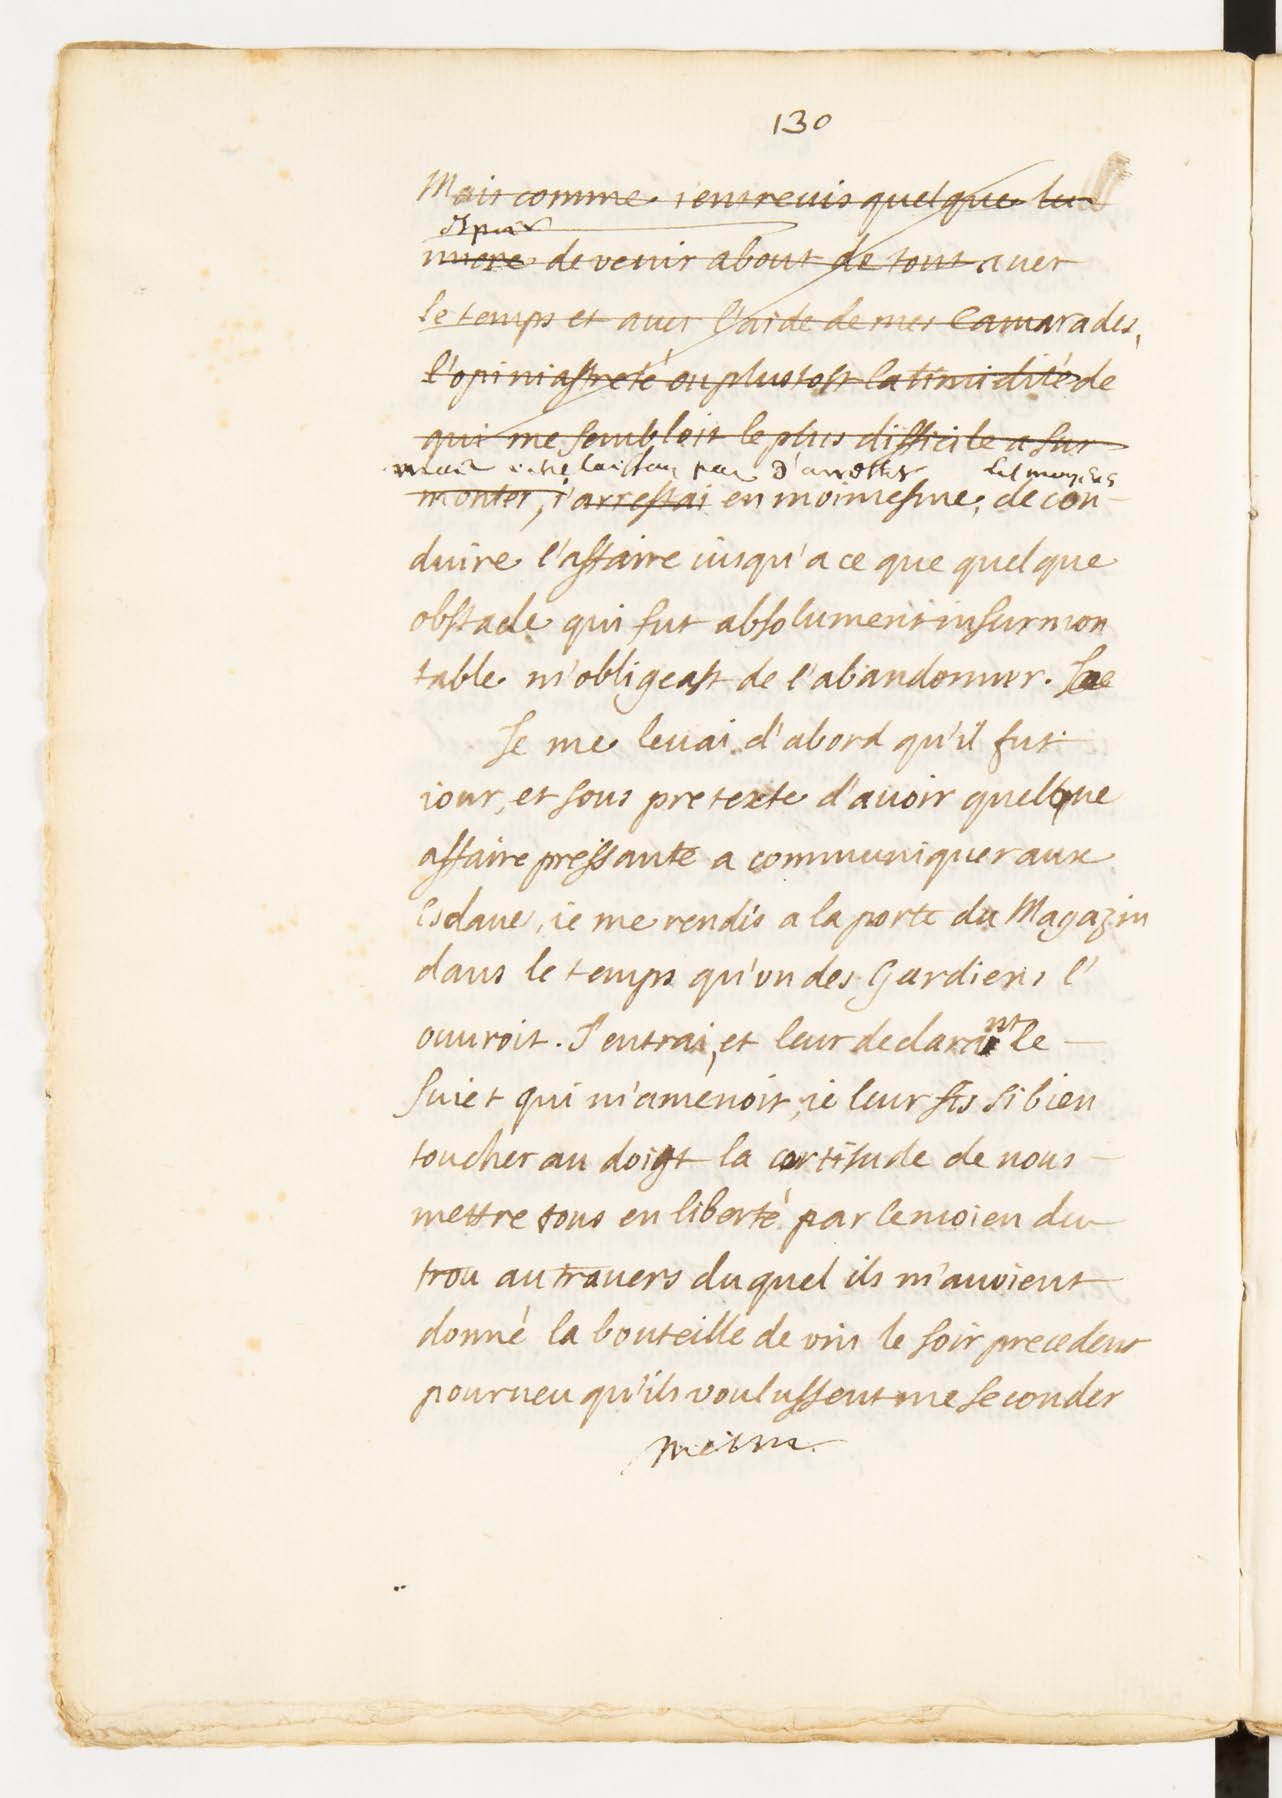 130
Mais comme i'entrevis quelque lu
Espoir
miere de venir about de tout avec
le temps et avec l'aide de mes Camarades,
l'opiniastreté ou plustost la timidité de
qui me sembloit le plus difficile a sur
mais ie ne laissay pas d'arrester les moyens
monter, i'arrestai en moimesme, de con-
duire l'affaire iusqu'a ce que quelque
obstacle qui fut absolument insurmon
table m'obligeast de l'abandonner.
Je me levai d'abord qu'il fut
iour, et sous pretexte d'avoir quelque
affaire pressante a communiquer aux
Esclave, ie me rendis a la porte du Magazin
dans le temps qu'vn des Gardiens l'
ouuroit. J'entrai, et leur declarant le
suiet qui m'amenoit, ie leur fis si bien
toucher au doigt la certitude de nous
mettre tous en liberté par le moien du
trou au travers duquel ils m'avoient
donné la bouteille de vin le soir precedent
pourveu qu'ils voulussent me seconder